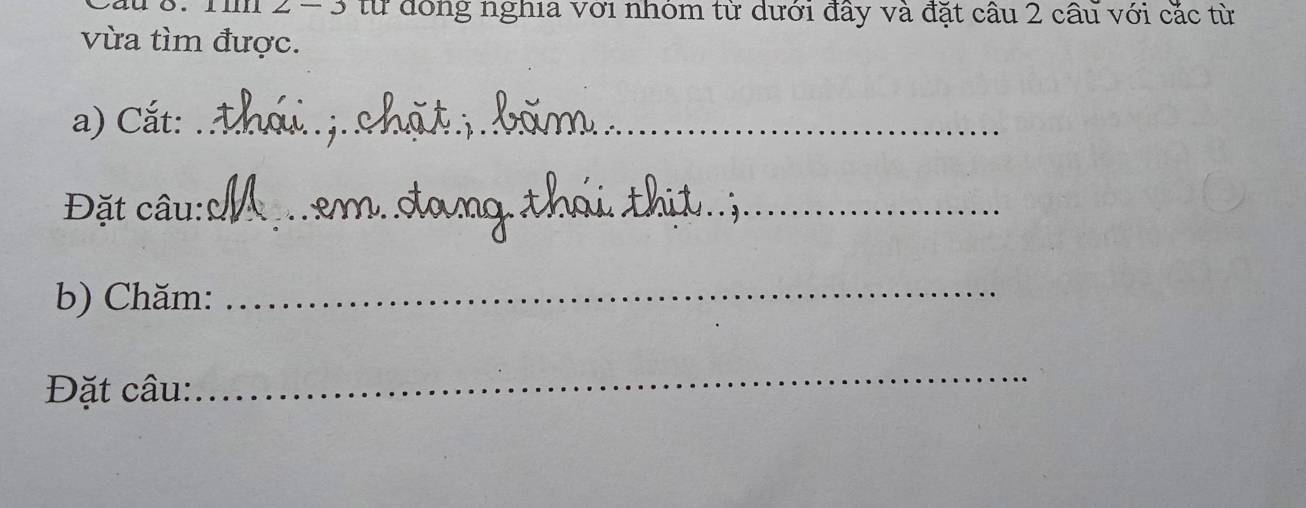 Câu 8: Tìm 2 – 3 từ đồng nghĩa với nhóm từ dưới đây và đặt câu 2 câu với các từ
vừa tìm được.
a) Cắt: ..thái..;..chặt.;..băm...............................
Đặt câu: Mẹ ...em..đang.thái.thịt..;..........................
b) Chăm: ......................................................
Đặt câu:.......................................................